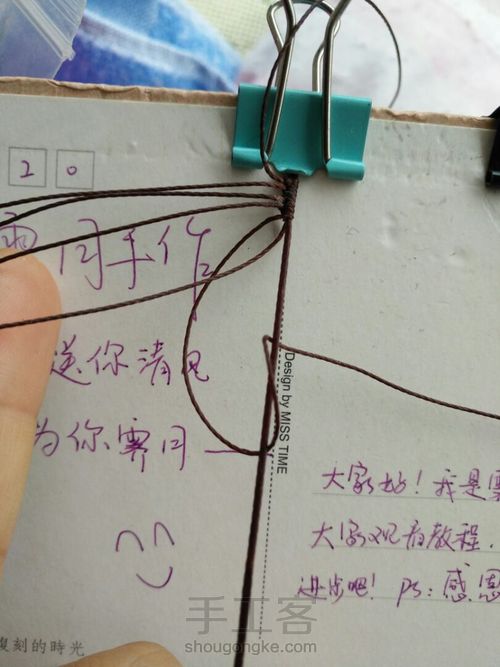 20
月手作
送你清风
为你霁月
Design by MISS TIME
大家好！我是
大家观看教程.
进步吧！ps：感恩
復刻的時光
手工客
shougongke.com